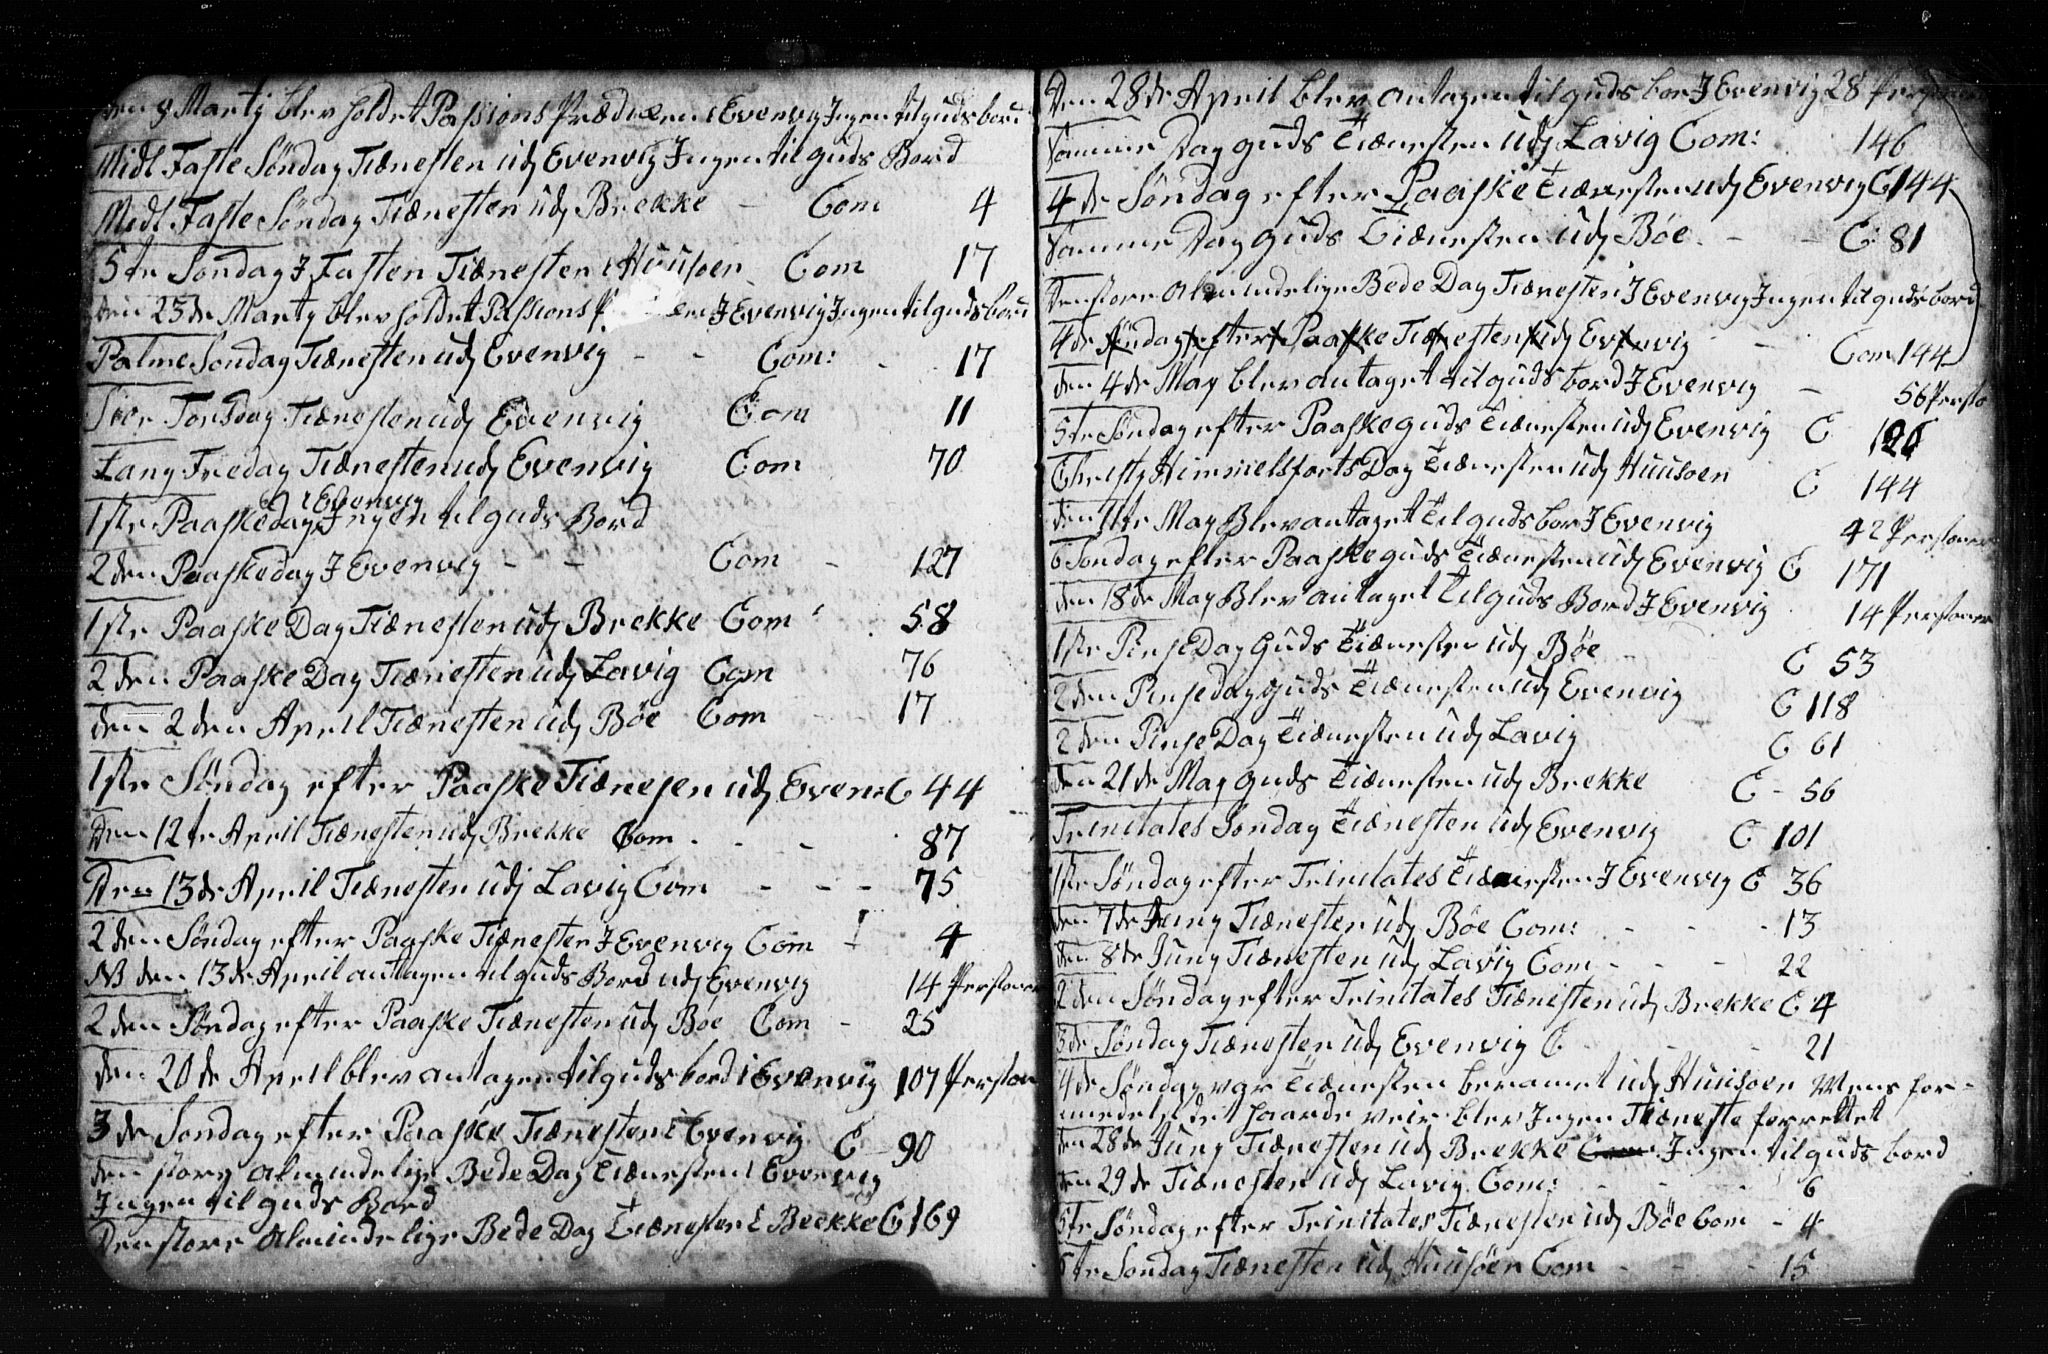 den 9 Martj blev holdet Passions Prædicken i Evenvig Ingen til guds bord
Midl Faste Søndag Tiænesten udj Evenvig Ingen til guds Bord
Midl Faste Søndag Tiænesten udj Brekke - Com 4
5te Søndag I Fasten Tiænesten i Huusøen Com 17
den 23de Martj blev holdet Passions P en I Evenvig Ingen til guds bord
Palme Søndag Tiænesten udj Evenvig - - Com: 17
Skier Torsdag Tiænesten udj Evenvig Com 11
Lang Fredag Tiænesten udj Evenvig Com 70
i Evenvig
1ste Paaskedag Ingen til guds Bord
2den Paaskedag I Evenvig - - Com - 127
1ste Paaske Dag Tiænesten udj Brekke Com: 58
2den Paaske Dag Tiænesten udj Lavig Com 76
den 2den April Tiænesten udj Bøe Com - - 17
1ste Søndag efter Paaske Tiænesen udj Evenv C 44
Den 12te April Tiænesten udj Brekke Com - - - 87
Den 13de April Tiænesten udj Lavig Com - - - 75
2den Søndag efter Paaske Tiænesten I Evenvig Com 4
NB den 13de April antagen til guds Bord udj Evenvig 14 Persloner
2den Søndag efter Paaske Tiænesten udj Bøe Com - 25
den 20de April blev antagen til guds bord i Evenvig 107 Persloner
3de Søndag efter Paaske Tiænesten i Evenvig C 90
den store almindelige Bede Dag Tiænesten i Evenvig
Ingen til guds Bord
Den store almindelige Bede Dag Tiænesten i Brekke C 169
Den 28de April blev antagen til guds bor I Evenvig 28 Personer
Samme Dag guds Tiænesten udj Lavig Com: 146
4de Søndag efter Paaske Tiænesten udj Evenvig C 144
Samme Dag guds Tiænesten udj Bøe - - C 81
Den store almindelige Bede Dag Tiænesten I Evenvig Ingen til guds bord
4de Søndag efter Paaske Tiænesten udj Evenvig - Com 144
den 4de May blev antaget til guds bord I Evenvig - 56 Perslo
5te Søndag efter Paaske guds Tiænesten udj Evenvig C 126
Christj Himmelsfarts Dag Tiænesten udj Huusøen C 144
den 11te May Blev antaget til guds bor I Evenvig 42 Persloner
6 Søndag efter Paaske guds Tiænesten udj Evenvig C 171
den 18de May Blev antaget til guds Bord I Evenvig 14 Persloner
1ste Pinse Dag guds Tiænesten udj Bøe C 53
2den Pinsedag guds Tiænesten udj Evenvig C 118
2den Pinse Dag Tiænesten udj Lavig C 61
den 21de May guds Tiænesten udj Brekke C - 56
Trinitates Søndag Tiænesten udj Evenvig C 101
1ste Søndag efter Trinitates Tiænesten I Evenvig C 36
den 7de Junj Tiænesten udj Bøe Com: - - - 13
den 8de Junj Tiænesten udj Lavig Com - - - 22
2den Søndag efter Trinitates Tiænesten udj Brekke C 4
3de Søndag Tiænesten udj Evenvig C - - - 21
4de Søndag var Tiænesten beramet udj Huusøen Mens for-
medelst det haarde veir blev Ingen Tiæneste forrettet
den 28de Junj Tiænesten udj Brekke Com Ingen til guds bord
den 29de Tiænesten udj Lavig Com: - - 6
5te Søndag efter Trinitates Tiænesten udj Bøe Com - 4
6te Søndag Tiænesten udj Huusøen Com - - - 15